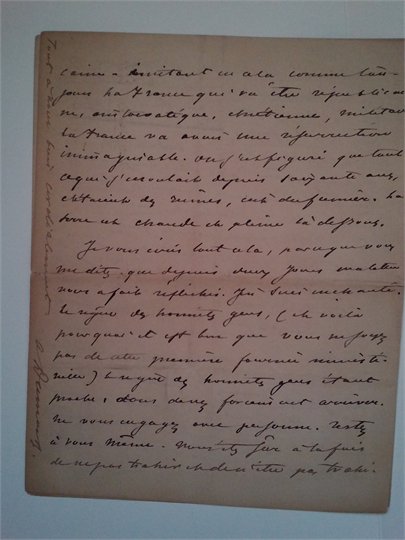 caine - imitant en cela comme tou-
jours la France qui va être républicai
ne, aristocratique, chrétienne, militaire
la France va avoir une résurrection
inimaginable. On s'est figuré que tout
ce qui s'écroulait depuis soixante ans,
c'étaient des ruines, du fumier. La
terre est chaude et pleine là dessous.
Je vous écris tout cela, parce que vous
me dites que depuis deux jours ma lettre
vous a fait réfléchir. J'en suis enchanté.
Le règne des honnêtes gens, (et voilà
pourquoi il est bon que vous ne soyez
pas de cette première fournée ministé-
rielle) le règne des honnêtes gens étant
proche, vous devez forcément arriver.
Ne vous engagez avec personne. Restez
à vous même. Vous êtes sûr à la fois
de ne pas trahir et de n'être pas trahi.
Tout à vous